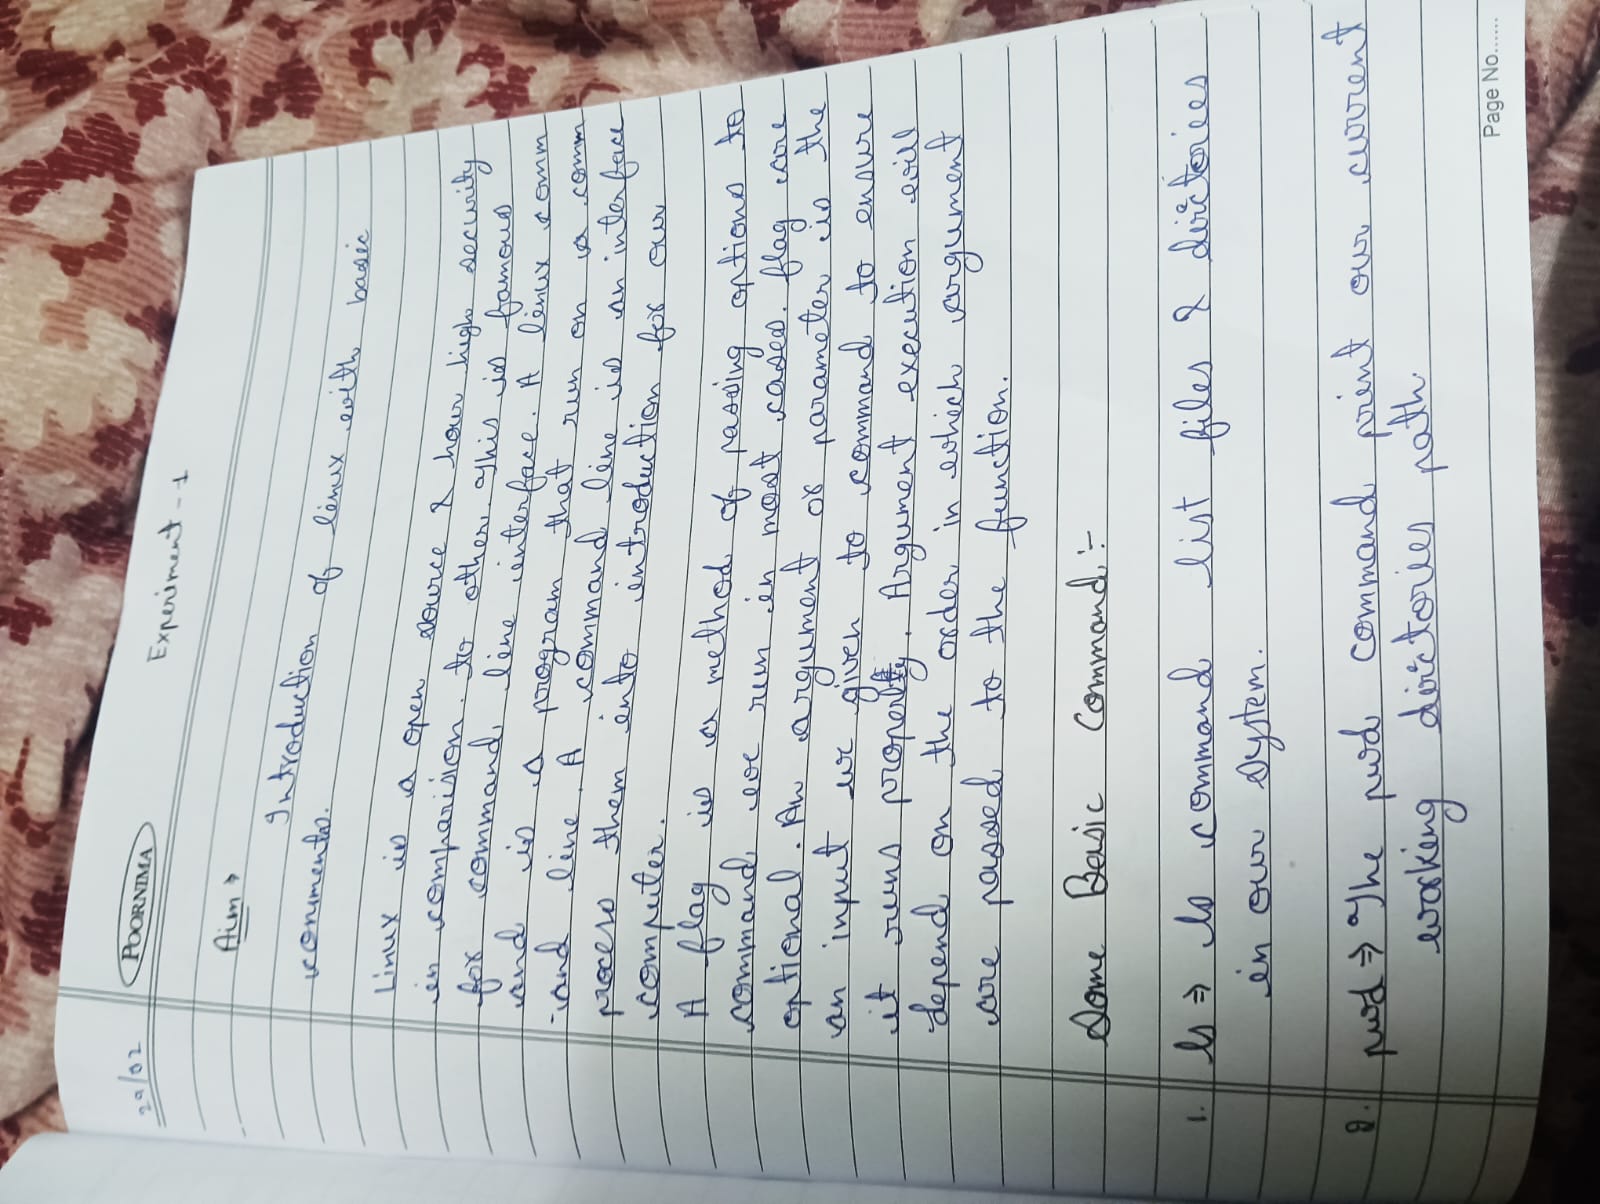 29/02
POORNIMA
Experiment - 1
Aim →
Introduction of linux with basic
comments.
Linux is a open source & hour high security
in comparision. to other. This is famous
for command line interface. A linux comm
and is a program that run on a comm
-and line. A command line is an interface
process them into introduction for our
computer.
A flag is a method of passing options to
command we run in most cases. flag are
optional. An argument or parameter is the
an input we given to command to ensure
it runs properly. Argument execution will
depend on the order in which argument
are passed to the function.
Some Basic Command:-
1. ls ⇒ ls command list files & directories
in our system.
2. pwd ⇒ The pwd command print our current
working directories path.
Page No......